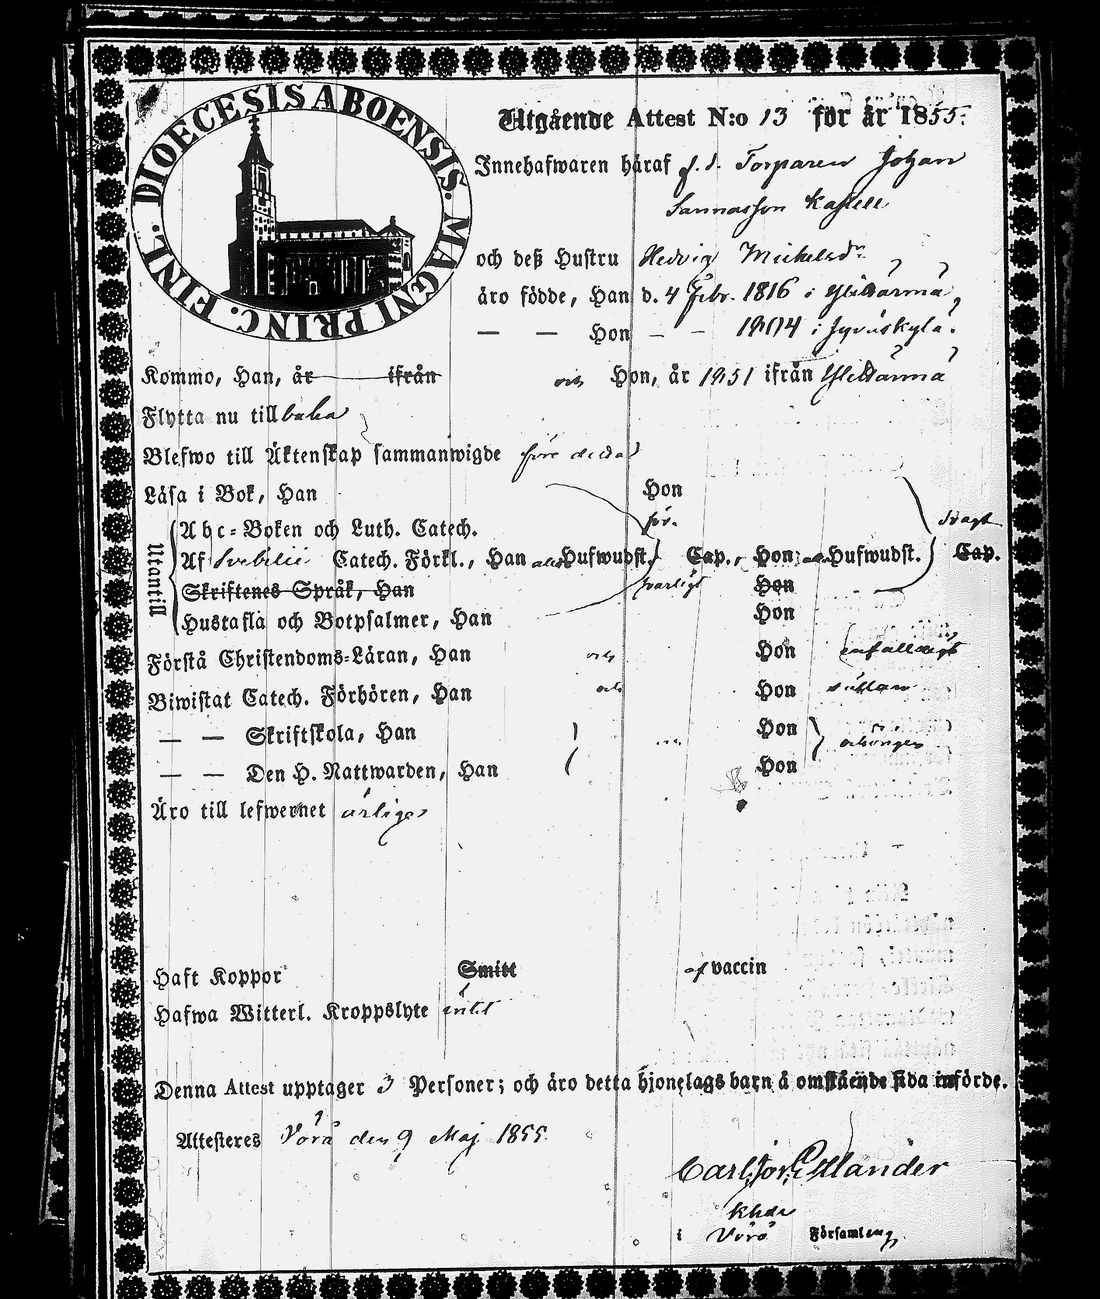 DIOECESIS ABOENSIS. MAGNI PRINC. FINL.
Utgående Attest N:o 13 för år 1855.
Innehafwaren häraf f.d. Torparen Johan
och deß Hustru Hedvig Mickelsdr
äro födde, Han d. 4 Febr. 1816 i Ylistarma
— — Hon — — i Jyväskylä.
Kommo, Han, år ifrån och Hon, år 1851 ifrån Ylistarma
Flytta nu till baka
Blefwo till Äktenskap sammanwigde före detta
Läsa i Bok, Han Hon
för-
Abc-Boken och Luth. Catech. svagt
Utantill
Af Svebilii Catech. Förkl., Han Hufwudst. Cap., Hon Hufwudst. Cap.
Skriftenes Språk, Han svarligt Hon
Hustafla och Botpsalmer, Han Hon
Förstå Christendoms-Läran, Han och Hon enfaldigt
Biwistat Catech. Förhören, Han och Hon sällan
— — Skriftskola, Han Hon
— — Den H. Nattwarden, Han Hon
Äro till lefwernet ärliga
Haft Koppor Smitt af vaccin
Hafwa Witterl. Kroppslyte intet
Denna Attest upptager 3 Personer; och äro detta hjonelags barn å omstående sida införde.
Attesteres Vörå den 9 Maj 1855.
Carl
Khde
i Vörå Församling.